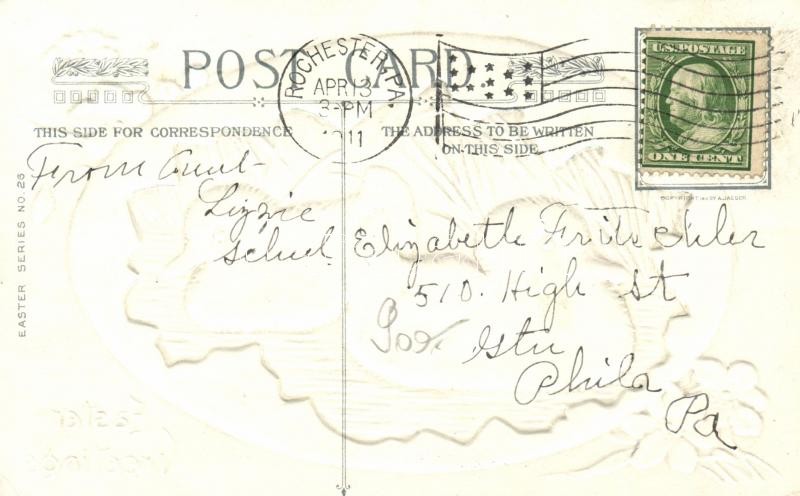 POST CARD
ROCHESTER, PA.
APR 13
3-PM
1911
U.S. POSTAGE
ONE CENT
THIS SIDE FOR CORRESPONDENCE
THE ADDRESS TO BE WRITTEN
ON THIS SIDE
EASTER SERIES NO. 25
From Aunt
Lizzie
Elizabeth
510. High St
Gtn
Phila
Pa
Easter
Greetings